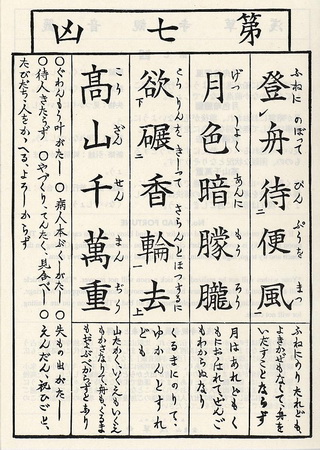 第七凶
登舟待便風
ふねに のぼつて びん ぷうを まつ
月色暗朦朧
げつ しよく あんに もう ろう
欲碾香輪去
りんを きしつて さらんと ほつするに
髙山千萬重
こう ざん せん まん ぢう
ふねにのりたれども、
よきかぜもなくて、舟を
いだすことならず
月はあれどもく
もにおほはれてぜんご
もわからぬなり
くるまにのりて、
ゆかんとすれ
ども
山たかくいくえもいくえ
もかさなりて、舟もくるま
もおよぶべからずとあり
○ぐわんもう叶がたし ○病人本ぷくしがたし ○失もの出がたし
○待人きたらず ○やづくり、てんたく、見合べし ○えんだん、祝ひごと、
たびだち、人をかゝへる、よろしからず